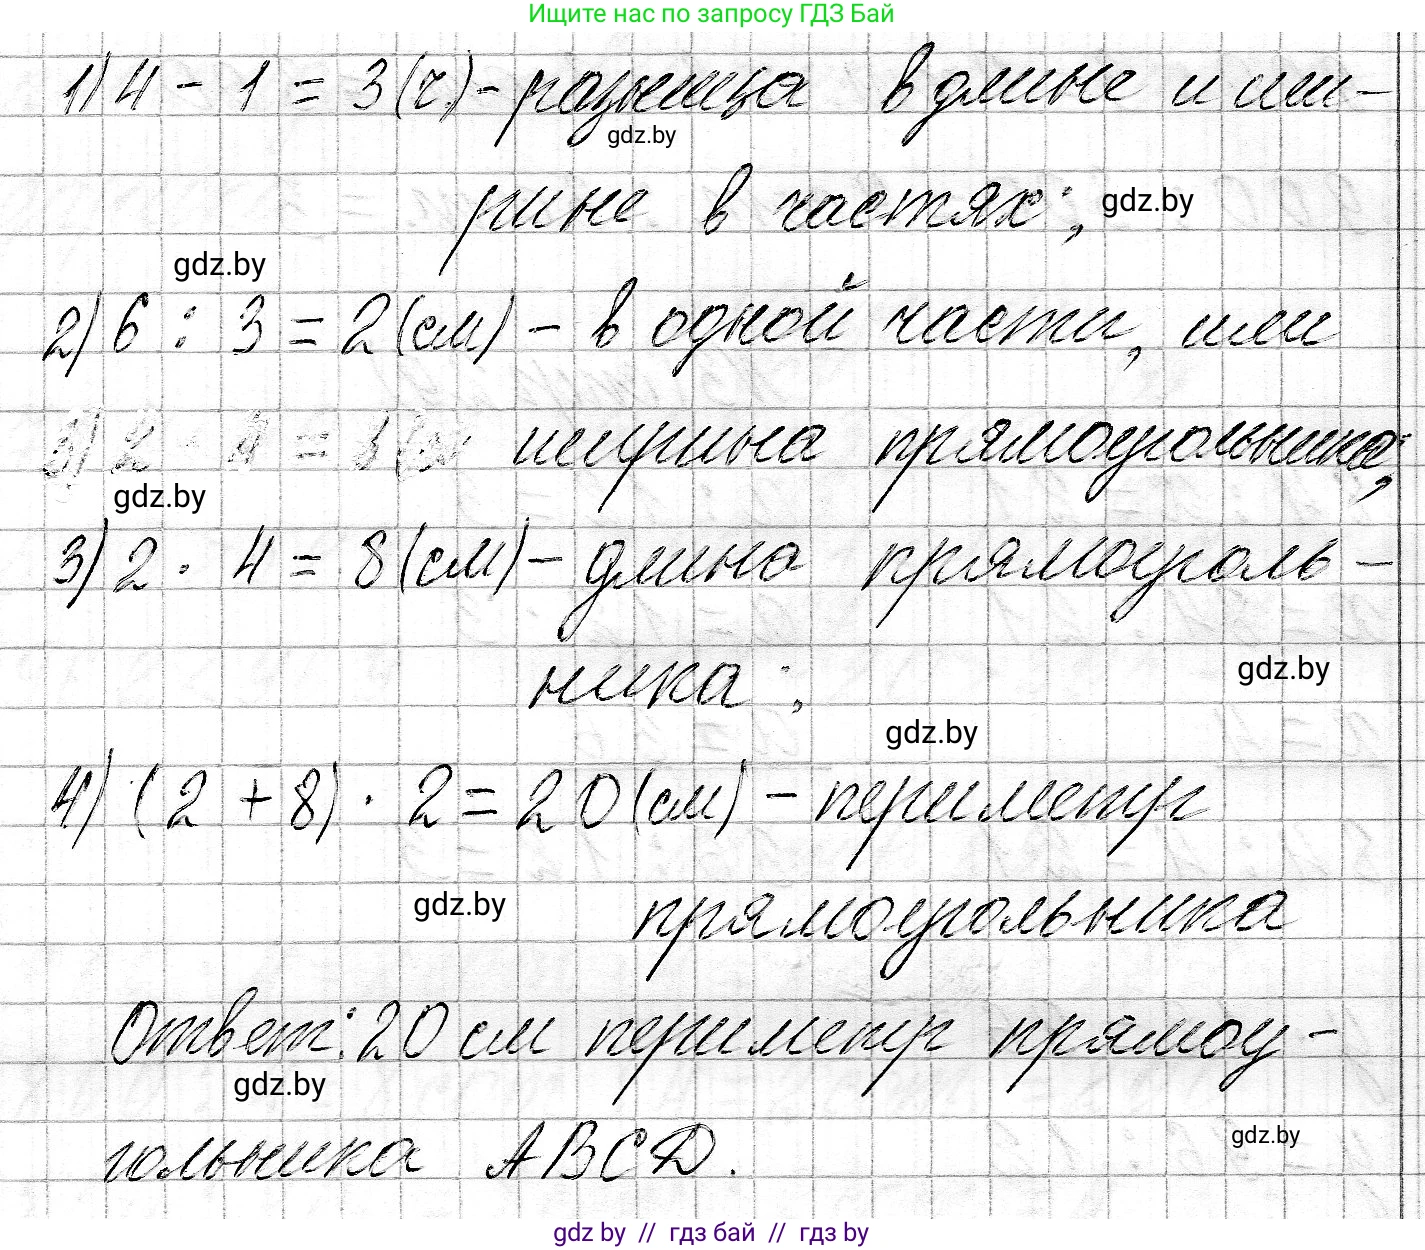 Ищите нас по запросу ГДЗ Бай
1) 4 - 1 = 3 (ч.) - разница в длине и ши-
gdz.by
рине в частях; gdz.by
gdz.by
2) 6 : 3 = 2 (см) - в одной части, или
3) 2 · 4 = 8 (см ширина прямоугольника;
gdz.by
3) 2 · 4 = 8 (см) - длина прямоуголь-
ника;
gdz.by
gdz.by
4) (2 + 8) · 2 = 20 (см) - периметр
gdz.by
прямоугольника
Ответ: 20 см периметр прямоу-
gdz.by
гольника ABCD.
gdz.by
gdz by // гдз бай // гдз by